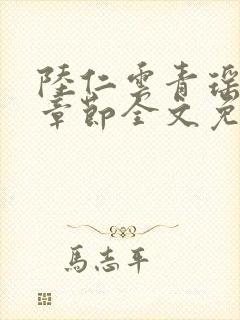 陸仁雲青瑶
章節全文免
馬志平